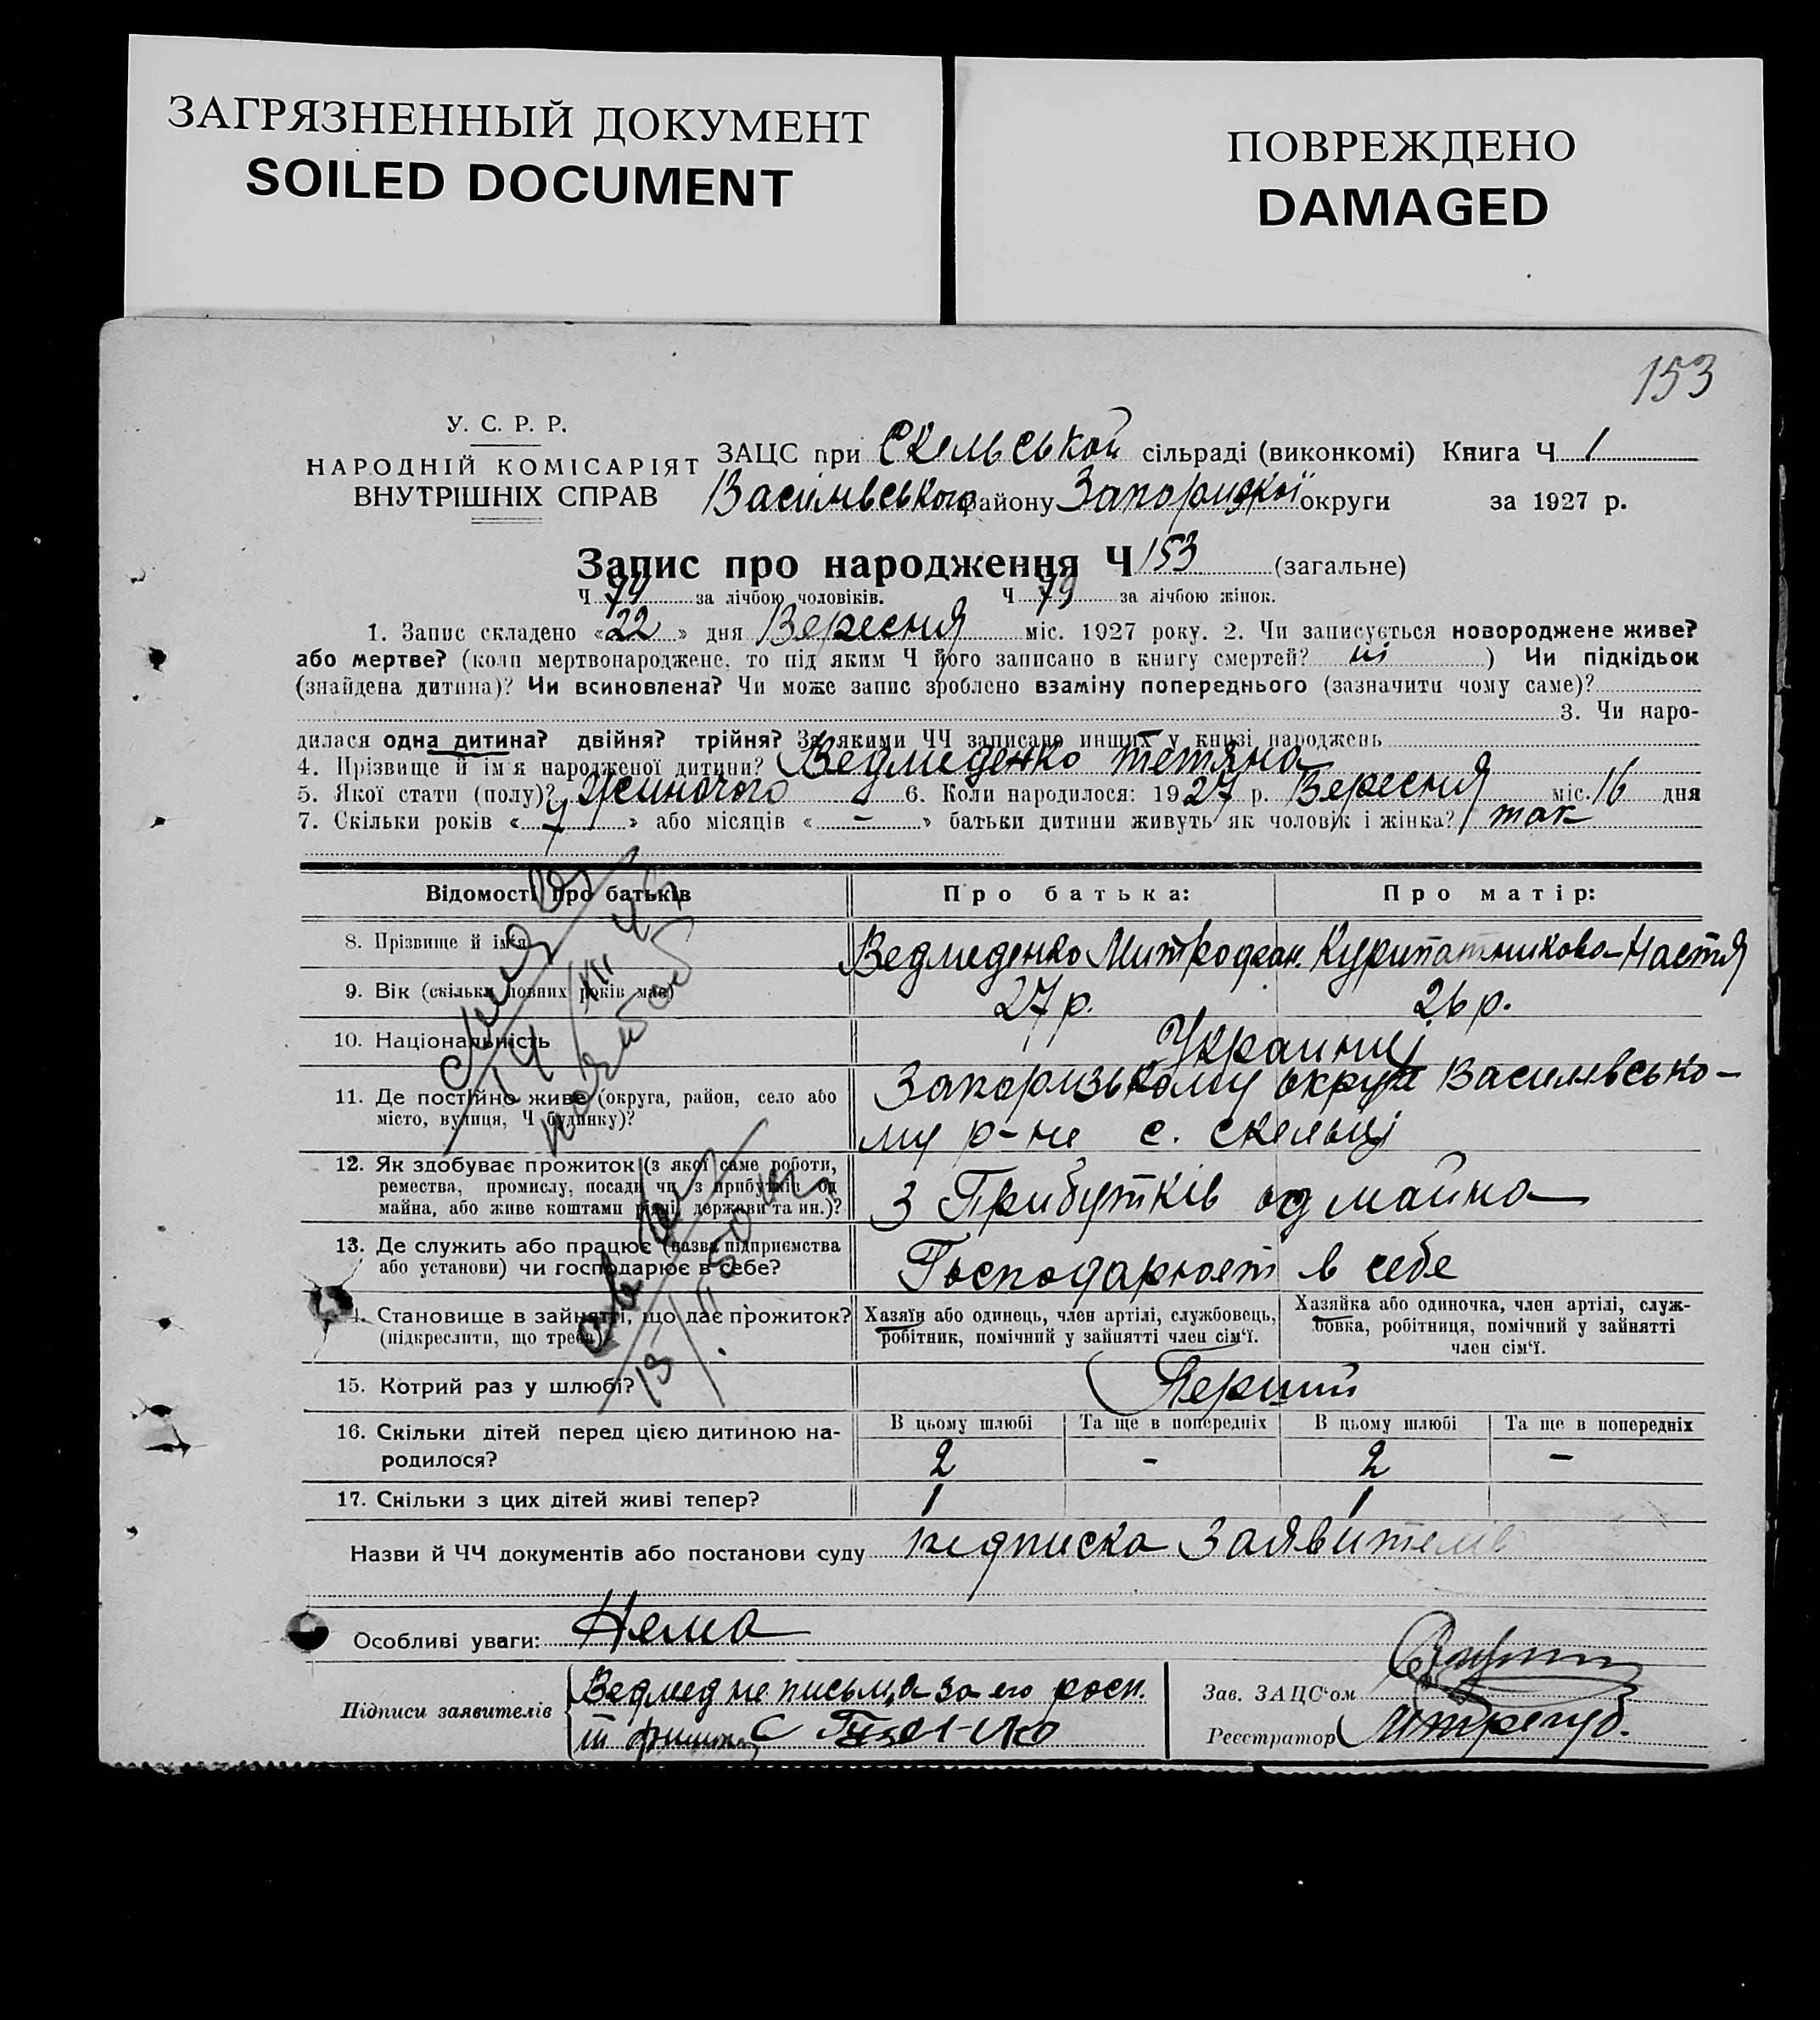 ЗАГРЯЗНЕННЫЙ ДОКУМЕНТ
SOILED DOCUMENT
ПОВРЕЖДЕНО
DAMAGED
153
У. С. Р. Р.
НАРОДНІЙ КОМІСАРІЯТ
ВНУТРІШНІХ СПРАВ
ЗАЦС при Скельській сільраді (виконкомі) Книга Ч 1
Василівського району Запорізкої округи за 1927 р.
Запис про народження Ч 153 (загальне)
Ч 74 за лічбою чоловіків. Ч 79 за лічбою жінок.
1. Запис складено «22» дня Вересня міс. 1927 року. 2. Чи записується новороджене живе?
або мертве? (коли мертвонароджене, то під яким Ч його записано в книгу смертей? ні ) Чи підкідьок
(знайдена дитина)? Чи всиновлена? Чи може запис зроблено взаміну попереднього (зазначити чому саме)?
3. Чи наро-
дилася одна дитина? двійня? трійня? За якими ЧЧ записано инших у книзі народжень
4. Прізвище й ім'я народженої дитини? Ведмеденко Тетяна
5. Якої стати (полу)? Жиночого 6. Коли народилося: 1927 р. Вересня міс. 16 дня
7. Скільки років « 7 » або місяців « - » батьки дитини живуть як чоловік і жінка? так
Відомості про батьків Про батька: Про матір:
8. Прізвище й ім'я Ведмеденко Митрофан. Курипатникова-Настя
9. Вік (скільки повних років має) 27 р. 26 р.
10. Національність Украинці
11. Де постійно живе (округа, район, село або Запоризькому округи Василівсько-
місто, вулиця, Ч будинку)? му р-не с. Скельці
12. Як здобуває прожиток (з якої саме роботи,
ремества, промислу, посади чи з прибутків од
майна, або живе коштами рідні, держави та ин.)? З Прибутків од майна
13. Де служить або працює (назва підприємства
або установи) чи господарює в себе? Господарюет в себе
14. Становище в зайнятті, що дає прожиток?
(підкреслити, що треба)
Хазяїн або одинець, член артілі, службовець,
робітник, помічний у зайнятті член сім'ї.
Хазяйка або одиночка, член артілі, служ-
бовка, робітниця, помічний у зайнятті
член сім'ї.
15. Котрий раз у шлюбі? Перший
16. Скільки дітей перед цією дитиною на-
родилося?
В цьому шлюбі Та ще в попередніх В цьому шлюбі Та ще в попередніх
2 - 2 -
17. Скільки з цих дітей живі тепер? 1 1
Назви й ЧЧ документів або постанови суду підписка Заявителів
Особливі уваги: Нема
Підписи заявителів Ведмед не письм, а за его росп.
Зав. ЗАЦС'ом
Реєстратор